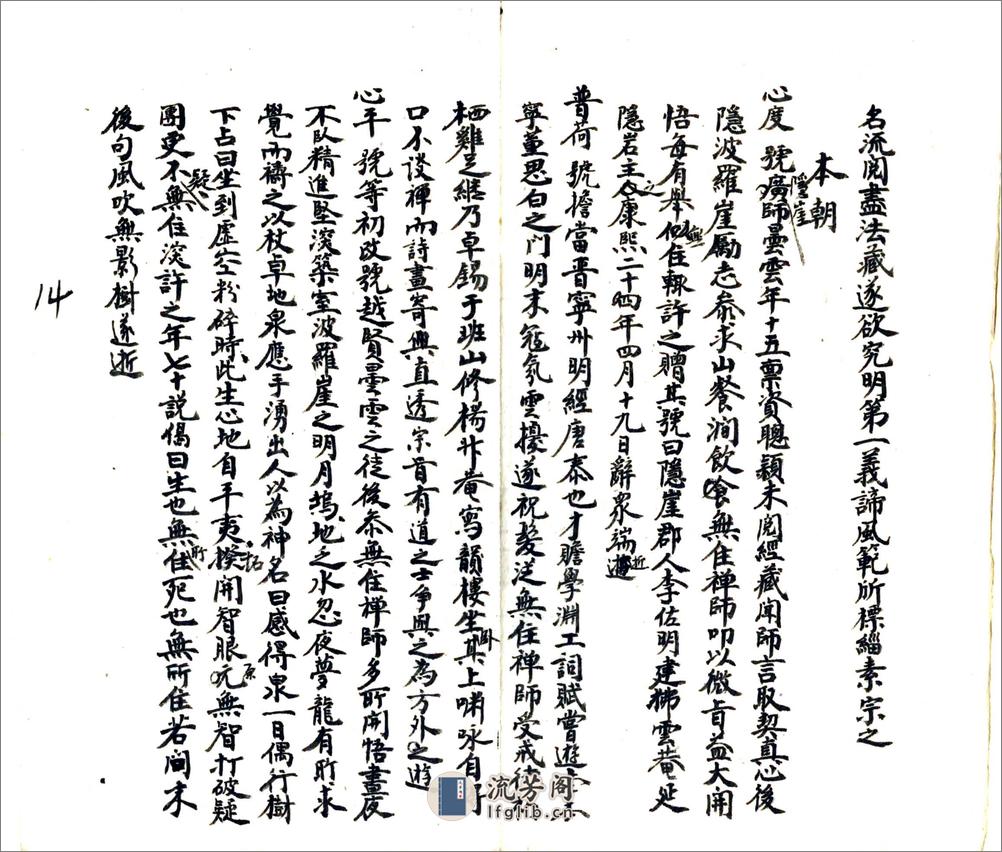 名流閱盡法藏遂欲究明第一義諦風範所標緇素宗之
本朝
心度號隱崖廣師曇雲年十五稟資聰穎未閱經藏聞師言取契真心後
隱波羅崖勵志叅求山餐澗飲食無住禅師叩以微旨益大開
悟每有舉似無住輙許之贈其號曰隱崖郡人李佐明建拂雲菴延
隱岩主之康熙二十四年四月十九日辭衆端逝
普荷號擔當晋寧州明經唐泰也才贍學淵工詞賦嘗遊
寧董思白之門明末寇氛雲擾遂祝髮従無住禅師受戒
栖雞足繼乃卓錫于班山修楊升菴寫韻樓坐卧其上嘯咏自
口不談禅而詩畫寄興直透宗旨有道之士争與之為方外之遊
心平號等初改號越賢曇雲之徒後叅無住禅師多所開悟晝夜
不臥精進堅深築室波羅崖之明月塢地之水忽夜夢龍有所求
覺而禱之以杖卓地泉應手湧出人以為神名曰感得泉一日偶行樹
下占曰坐到虛空粉碎時此生心地自平夷撥開智眼元無智打破疑
團更不疑無住深許之年七十說偈曰生也無所住死也無所住若問末
後句風吹無影樹遂逝
14
流芳阁
lfglib.cn